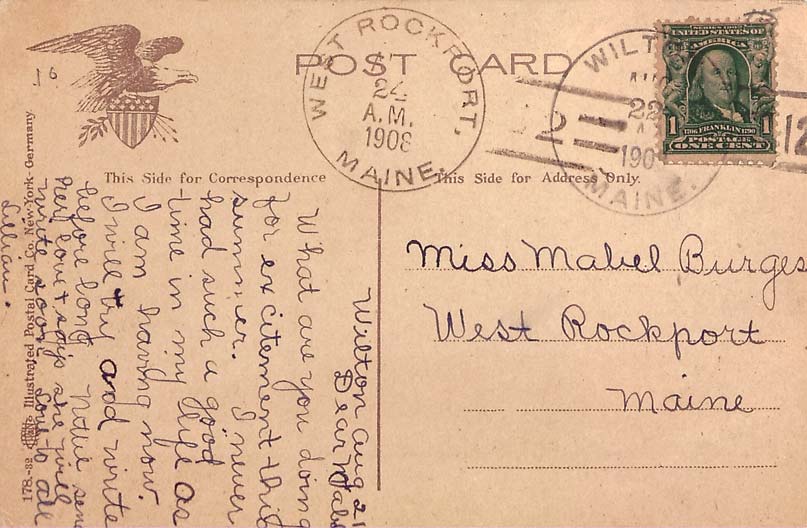 POST CARD
WEST ROCKPORT,
24
A.M.
1908
MAINE.
WILT
22
190
MAINE.
SERIES 1902
UNITED STATES OF
AMERICA
1706 FRANKLIN 1790
POSTAGE
1 ONE CENT 1
12
16
This Side for Correspondence
This Side for Address Only.
Miss Mabel Burges
West Rockport
Maine
Wilton Aug 21
Dear Mabe
What are you doing
for excitement this
summer. I never
had such a good
time in my life as
I am having now.
I will try and write
before long Nollie sen
her love & says she will
write soon. Love to all
Lillian.
178.-32 Illustrated Postal Card Co. New-York-Germany